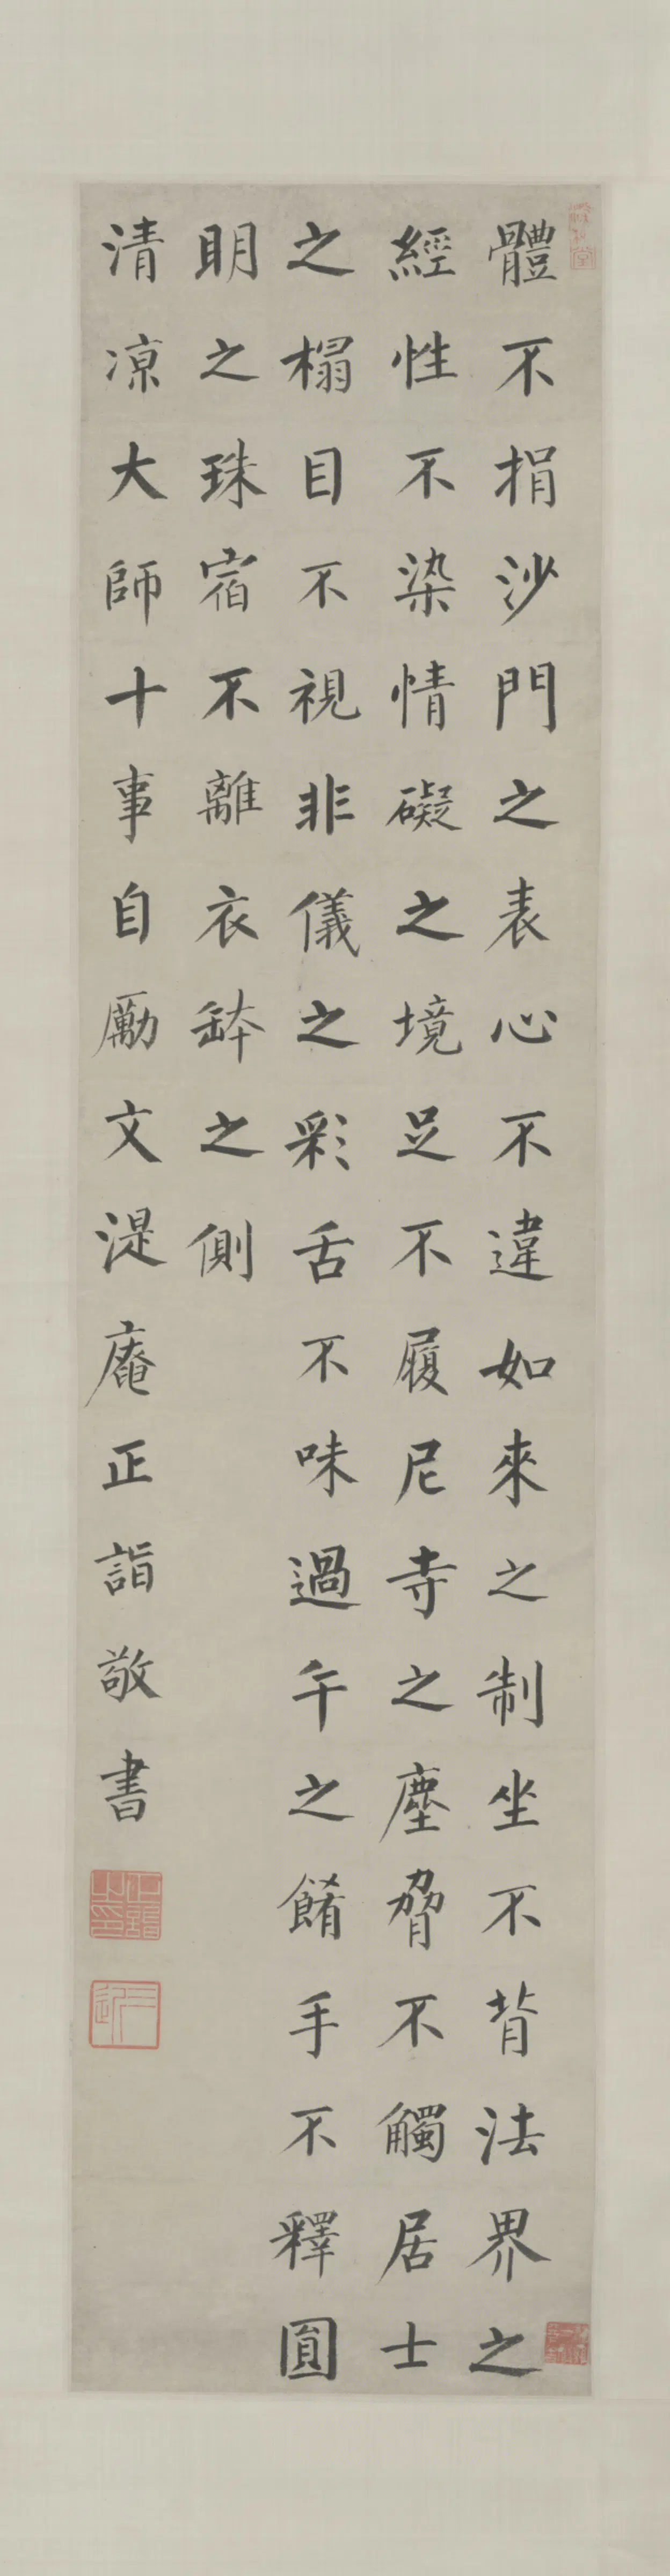 體不捐沙門之表心不違如來之制坐不背法界之
經性不染情礙之境足不履尼寺之塵脅不觸居士
之榻目不視非儀之彩舌不味過午之餚手不釋圓
明之珠宿不離衣鉢之側
清涼大師十事自勵文湜庵正詣敬書